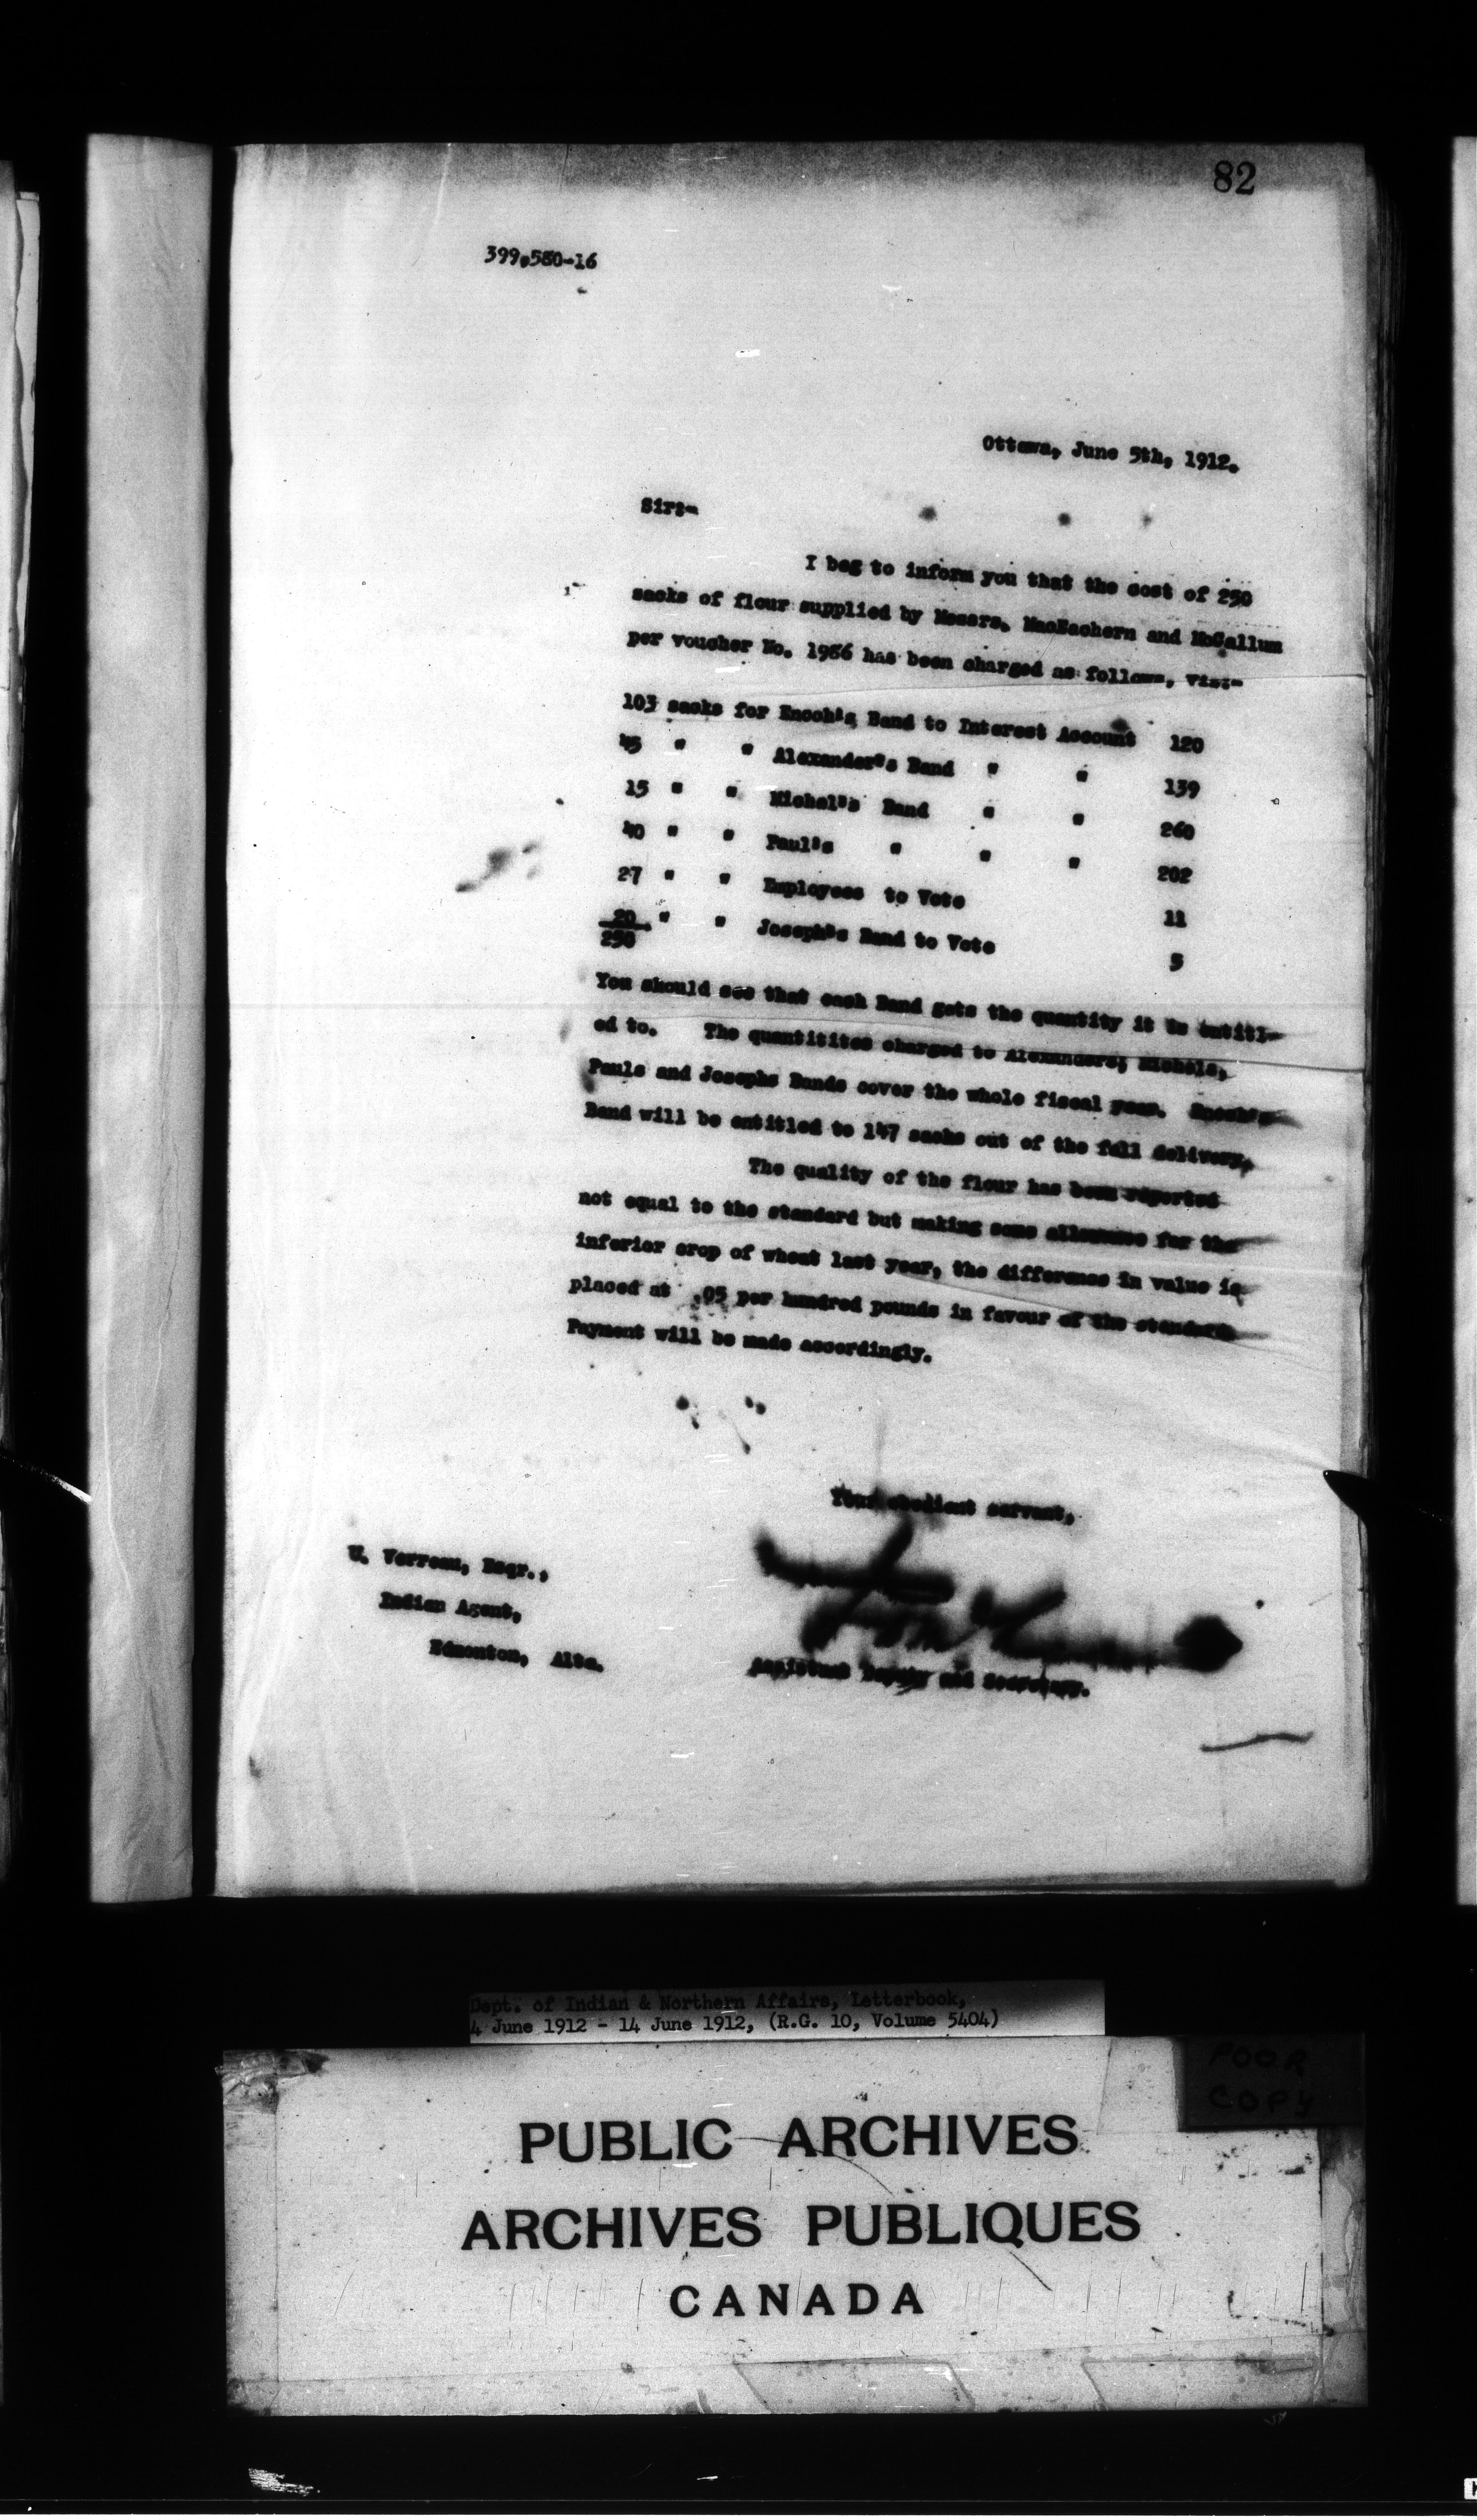 82
399,580-16
Ottawa, June 5th, 1912.
Sir:-
I beg to inform you that the cost of 250
sacks of flour supplied by Messrs. MacEachern and McCallum
per voucher No. 1986 has been charged as follows, viz:-
103 sacks for Enoch's Band to Interest Account 120
45 " " Alexander's Band " " 139
15 " " Michel's Band " " 260
40 " " Paul's " " " 202
27 " " Employees to Vote 11
20 " " Joseph's Band to Vote 5
250
You should see that each Band gets the quantity it is entitl-
ed to. The quantitites charged to Alexanders, Michels,
Pauls and Josephs Bands cover the whole fiscal year. Enoch's
Band will be entitled to 147 sacks out of the fall delivery.
The quality of the flour has been reported
not equal to the standard but making some allowance for the
inferior crop of wheat last year, the difference in value is
placed at .05 per hundred pounds in favour of the standard
Payment will be made accordingly.
Your obedient servant,
U. Verreau, Esqr.,
Indian Agent,
Edmonton, Alta.
Assistant Deputy and Secretary.
Dept. of Indian & Northern Affairs, Letterbook,
4 June 1912 - 14 June 1912, (R.G. 10, Volume 5404)
POOR
COPY
PUBLIC ARCHIVES
ARCHIVES PUBLIQUES
CANADA